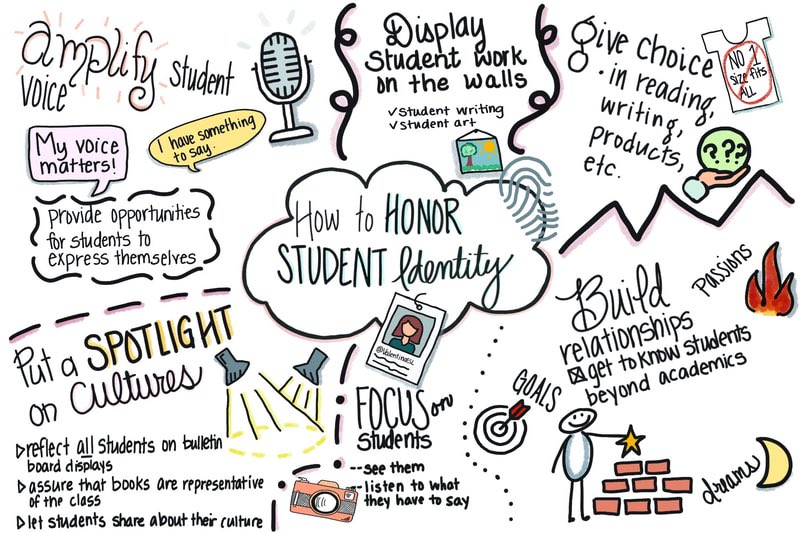 amplify student
voice
My voice
matters!
I have something
to say.
Provide opportunities
for students to
express themselves
Display
Student work
on the walls
✓student writing
✓student art
Give choice
· in reading,
writing,
Products,
etc.
NO 1
size fits
ALL
???
How to HONOR
STUDENT Identity
@ValentinaESL
Put a SPOTLIGHT
on Cultures
▷reflect all students on bulletin
board displays
▷assure that books are representative
of the class
▷let students share about their culture
FOCUS on
Students
--see them
--listen to what
they have to say
Build
relationships
get to know students
beyond academics
Passions
GOALS
dreams